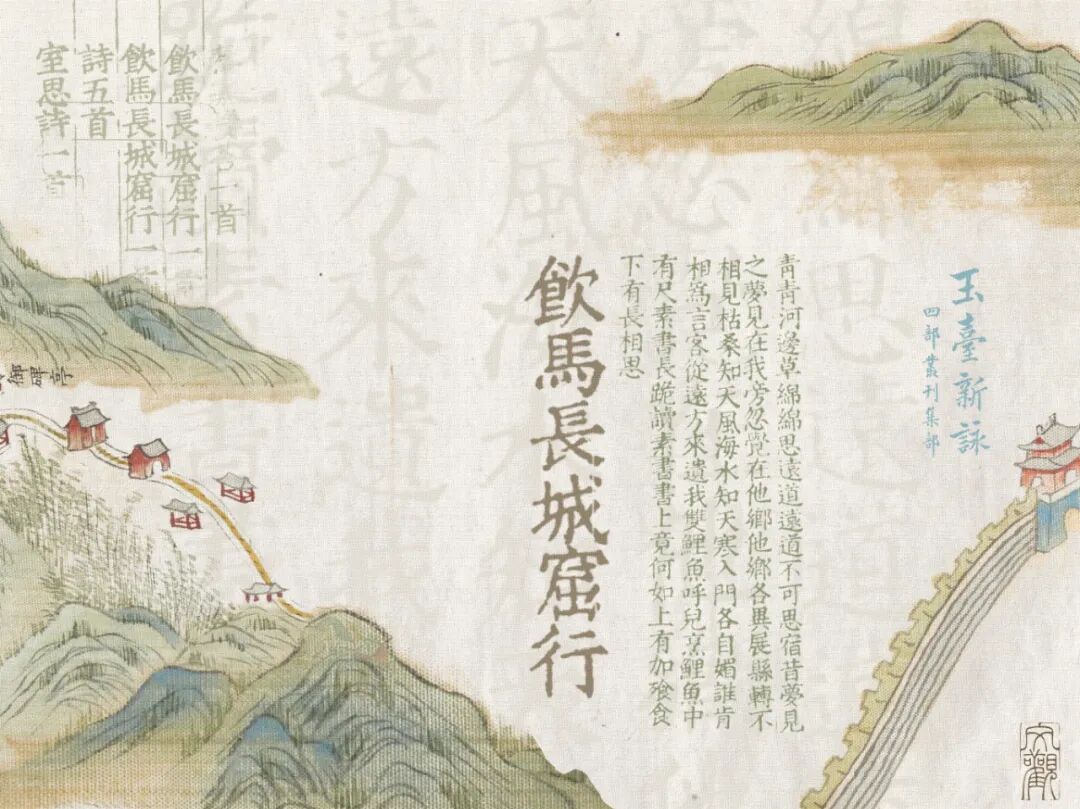 玉臺新詠
四部叢刊集部
青青河邊草綿綿思遠道遠道不可思宿昔夢見
之夢見在我旁忽覺在他鄉他鄉各異展縣轉不
相見枯桑知天風海水知天寒入門各自媚誰肯
相爲言客從遠方來遺我雙鯉魚呼兒烹鯉魚中
有尺素書長跪讀素書書上竟何如上有加飡食
下有長相思
飲馬長城窟行
一首
飲馬長城窟行一
飲馬長城窟行一
詩五首
室思詩一首
御碑亭
綿思遠道
旁忽
天風海
遠方來遺
文觀